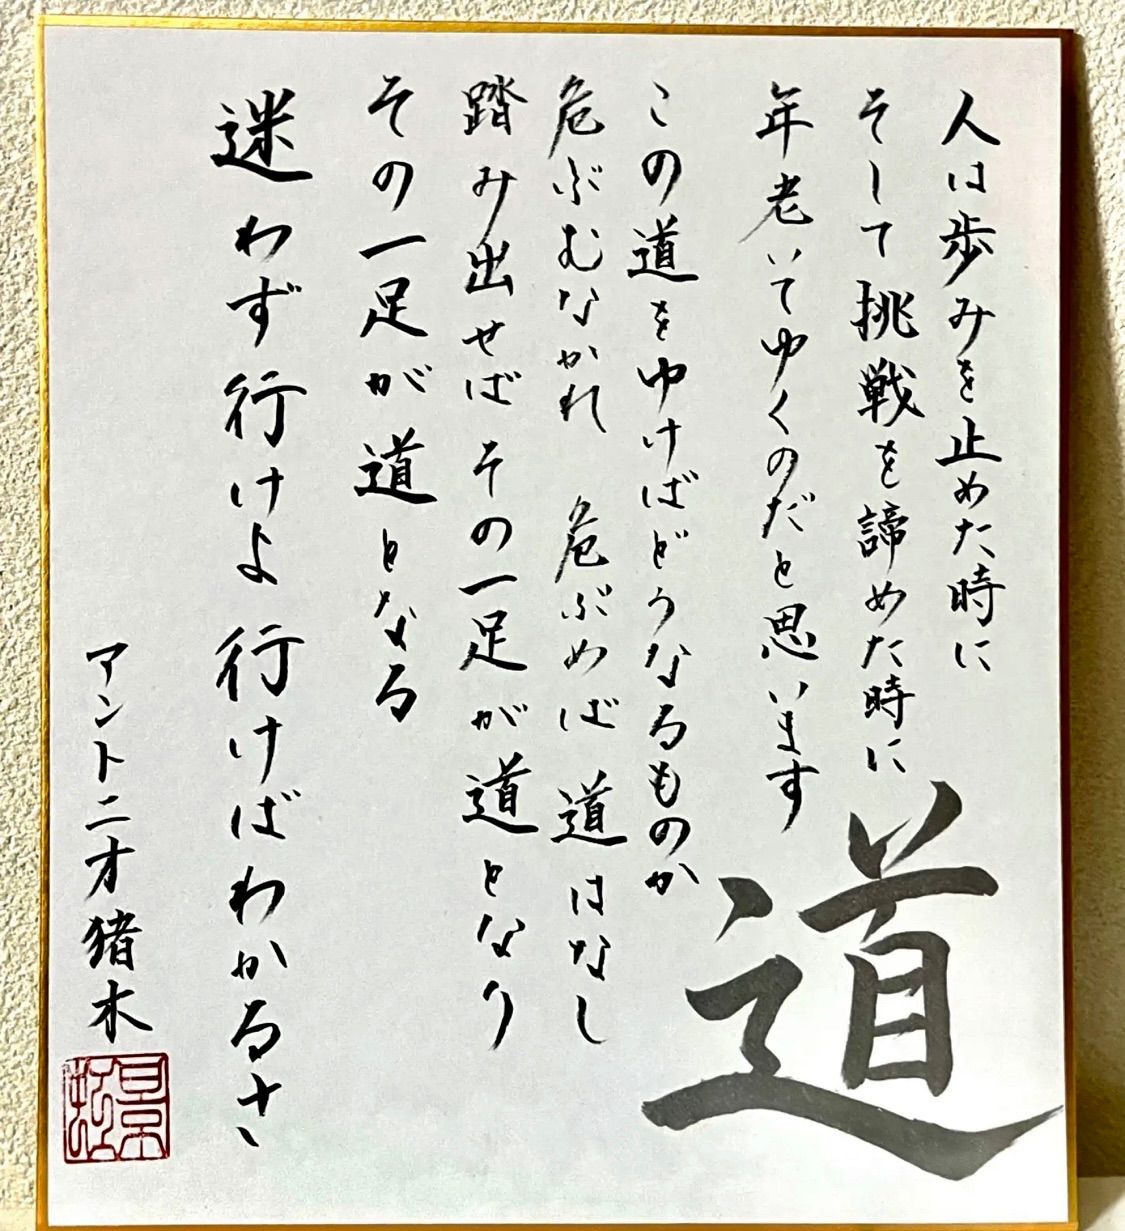 人は歩みを止めた時に
そして挑戦を諦めた時に
年老いてゆくのだと思います
この道をゆけばどうなるものか
危ぶむなかれ 危ぶめば 道はなし
踏み出せば その一足が道となり
その一足が道となる
迷わず行けよ 行けばわかるさ
アントニオ猪木
道